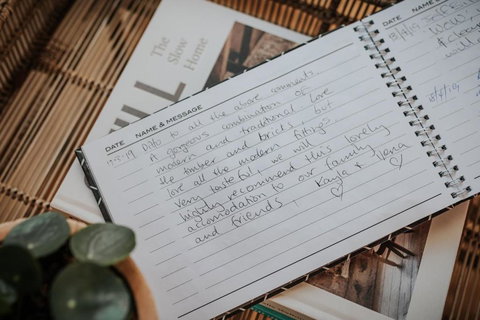 The
Slow
Home
LL
DATE NAME & MESSAGE
Ditto to all the above comments.
A gorgeous combination of
modern and traditional. Love
the timber and bricks, but
love all the modern fittings.
Very tasteful, we will
highly recommend this lovely
accomodation to our family
and friends. Kayla & Jena
DATE NAME &